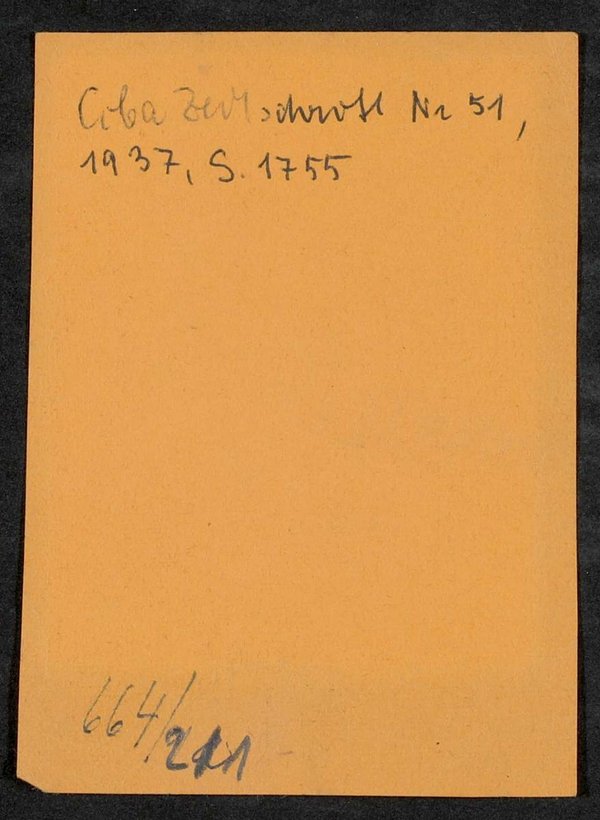 Ciba Zeitschrift Nr 51,
1937, S. 1755
664/211